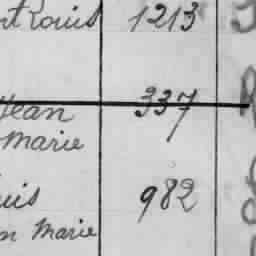 nt Louis 1213
Jean 337
Marie
uis 982
n Marie